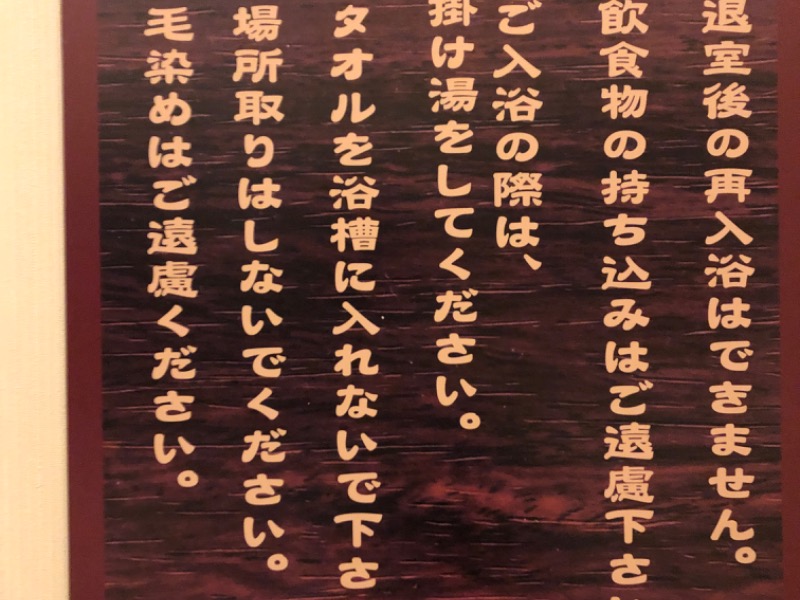 退室後の再入浴はできません。
飲食物の持ち込みはご遠慮下さい
ご入浴の際は、
掛け湯をしてください。
タオルを浴槽に入れないで下さ
場所取りはしないでください。
毛染めはご遠慮ください。